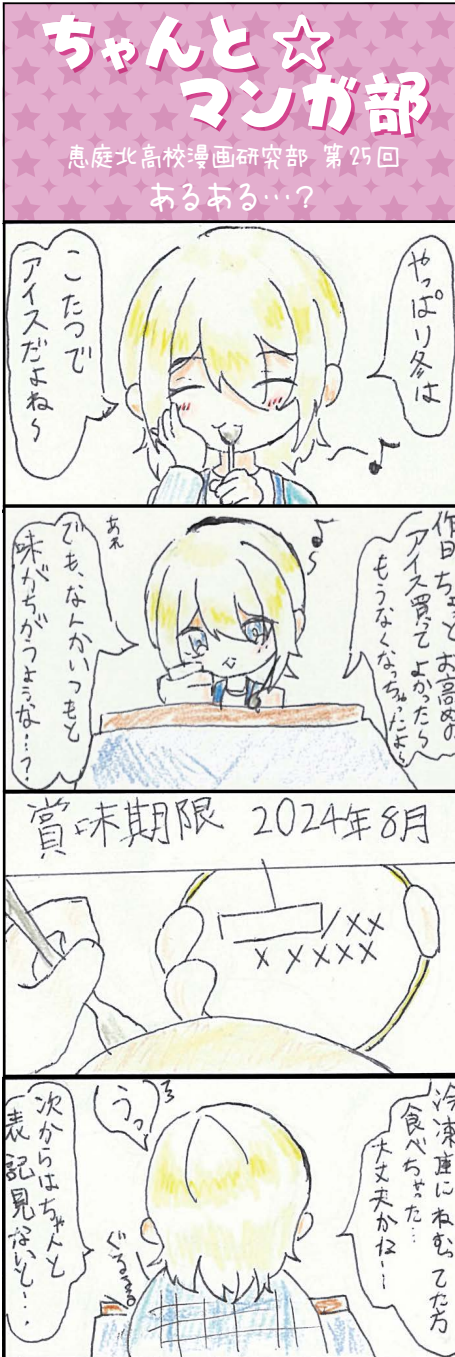 ちゃんと☆
マンガ部
恵庭北高校漫画研究部 第25回
あるある…?
やっぱり冬は
こたつで
アイスだよね〜
昨日ちょっとお高めの
アイス買ってよかった〜
もうなくなっちゃったよ〜
あれ
でも、なんかいつもと
味がちがうような…?
賞味期限 2024年8月
/××
×××××
冷凍庫にねむってた方
食べちゃった…
大丈夫かね…
うっ
ぐぎゅるる
次からはちゃんと
表記見ないと…